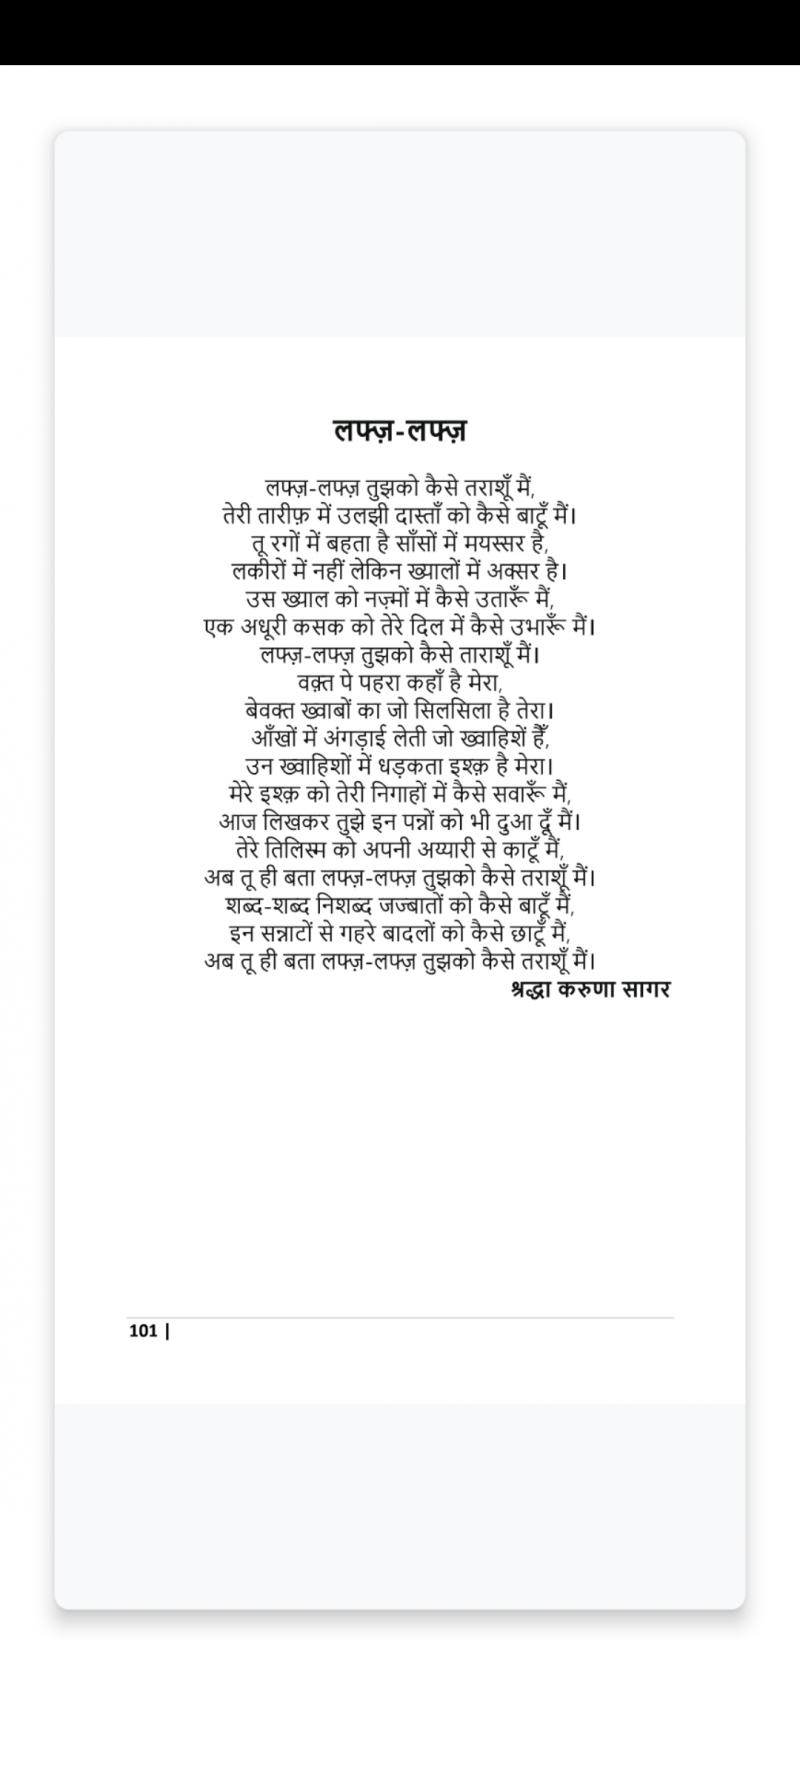 लफ्ज़-लफ्ज़
लफ्ज़-लफ्ज़ तुझको कैसे तराशूँ मैं,
तेरी तारीफ़ में उलझी दास्ताँ को कैसे बाटूँ मैं।
तू रगों में बहता है साँसों में मयस्सर है,
लकीरों में नहीं लेकिन ख्यालों में अक्सर है।
उस ख्याल को नज़्मों में कैसे उतारूँ मैं,
एक अधूरी कसक को तेरे दिल में कैसे उभारूँ मैं।
लफ्ज़-लफ्ज़ तुझको कैसे ताराशूँ मैं।
वक़्त पे पहरा कहाँ है मेरा,
बेवक्त ख्वाबों का जो सिलसिला है तेरा।
आँखों में अंगड़ाई लेती जो ख्वाहिशें हैँ,
उन ख्वाहिशों में धड़कता इश्क़ है मेरा।
मेरे इश्क़ को तेरी निगाहों में कैसे सवारूँ मैं,
आज लिखकर तुझे इन पन्नों को भी दुआ दूँ मैं।
तेरे तिलिस्म को अपनी अय्यारी से काटूँ मैं,
अब तू ही बता लफ्ज़-लफ्ज़ तुझको कैसे तराशूँ मैं।
शब्द-शब्द निशब्द जज्बातों को कैसे बाटूँ मैं,
इन सन्नाटों से गहरे बादलों को कैसे छाटूँ मैं,
अब तू ही बता लफ्ज़-लफ्ज़ तुझको कैसे तराशूँ मैं।
श्रद्धा करुणा सागर
101 |